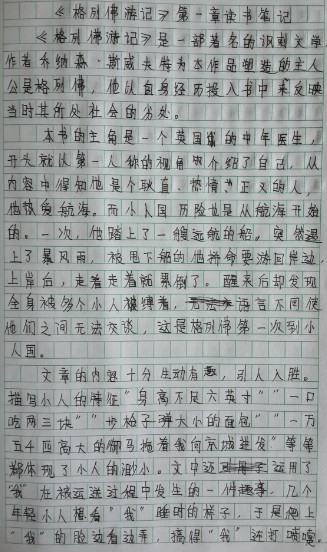 《格列佛游记》第一章读书笔记
《格列佛游记》是一部著名的讽刺文学
作者乔纳森·斯威夫特为本作品塑造的主人
公是格列佛,他以自身经历投入书中来反映
当时其所处社会的劣处。
本书的主角是一个英国籍的中年医生,
开头就从第一人称的视角介绍了自己,从
内容中得知他是个耿直、热情、正义的人,
他热爱航海。而小人国历险也是从航海开始
的。一次,他踏上了一艘远航的船。突然遇
上了暴风雨,被甩下船的他拼命要游回岸边,
上岸后,走着走着就累倒了。醒来后却发现
全身被多个小人被绑着,语言不同使
他们之间无法交谈,这是格列佛第一次到小
人国。
文章的内容十分生动有趣,引人入胜。
描写小人的特征“身高不足六英寸”“一口
吃两三块”“步枪子弹大小的面包”“一万
五千匹高大的御马拖着我向京城进发”等等
都体现了小人的渺小。文中还运用了
“我”在被运送过程中发生的一件趣事,几个
年轻小人想看“我”睡时的样子,于是爬上
“我”的脸边看边弄,搞得“我”还打喷嚏。